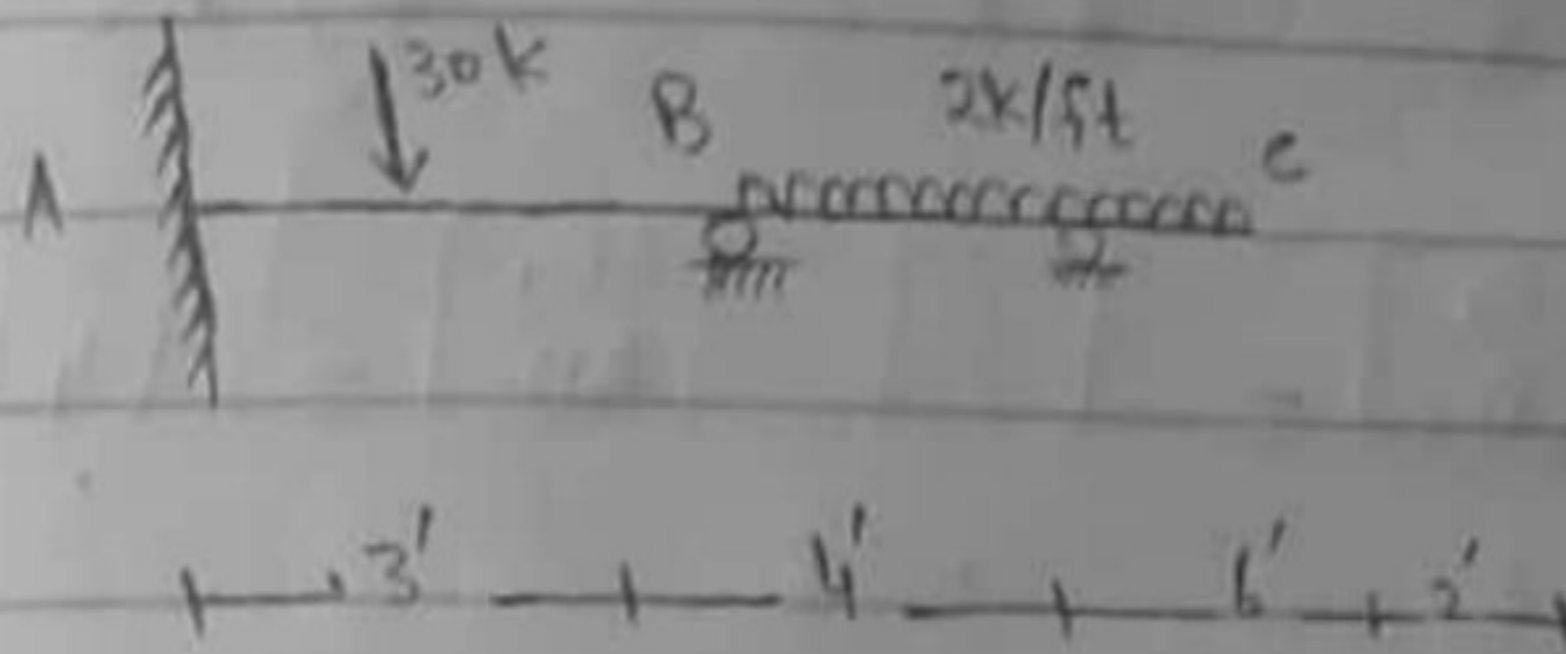 30k
B
2k/ft
C
A
3' 4' 6' 2'